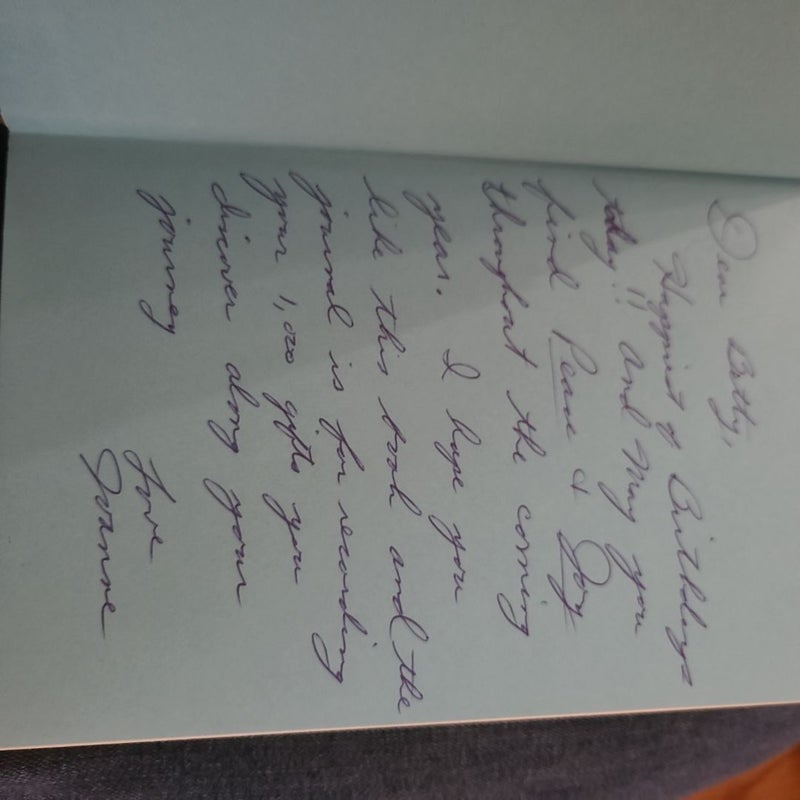 Dear Betty,
Happiest of Birthdays
today!! And May you
find Peace & Joy
throughout the coming
year. I hope you
like this book and the
journal is for recording
your 1,000 gifts you
discover along your
journey
Love
Joanne